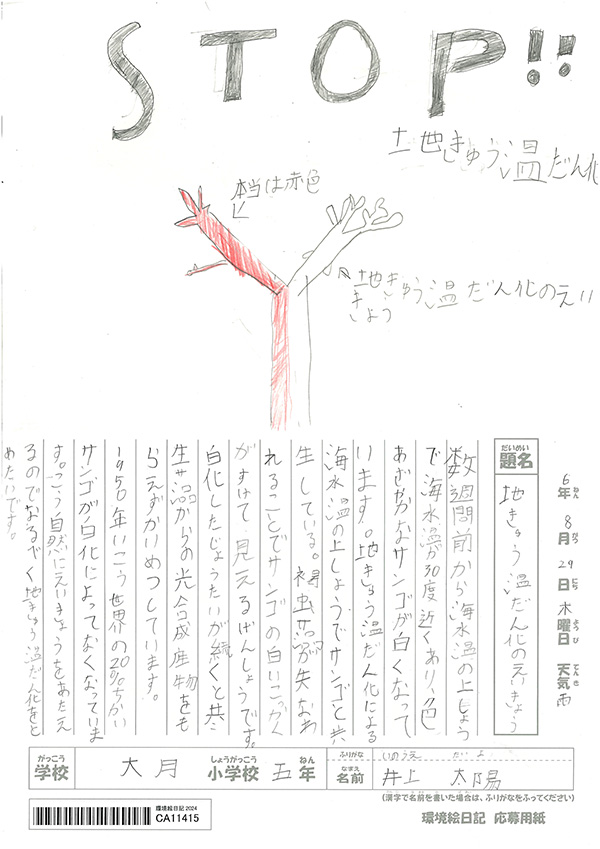 STOP!!
土地きゅう温だん化
本当は赤色
土地きゅう温だん化のえい
きょう
6年 8月 29日 木曜日 天気 雨
題名
地きゅう温だん化のえいきょう
数週間前から海水温の上しょう
で海水温が30度近くあり、色
あざやかなサンゴが白くなって
います。地きゅう温だん化による
海水温の上しょうでサンゴと共
生している。褐虫藻が失なわ
れることでサンゴの白いこっかく
がすけて見えるげんしょうです。
白化したじょうたいが続くと共
生藻からの光合成産物をも
らえずかいめつしています。
1950年いこう世界の20%ちかい
サンゴが白化によってなくなっていま
す。こう自然にえいきょうをあたえ
るのでなるべく地きゅう温だん化をと
めたいです。
学校 大月 小学校 五年
ふりがな いのうえ
名前 井上 太陽
(漢字で名前を書いた場合は、ふりがなをふってください)
環境絵日記 2024
CA11415
環境絵日記 応募用紙